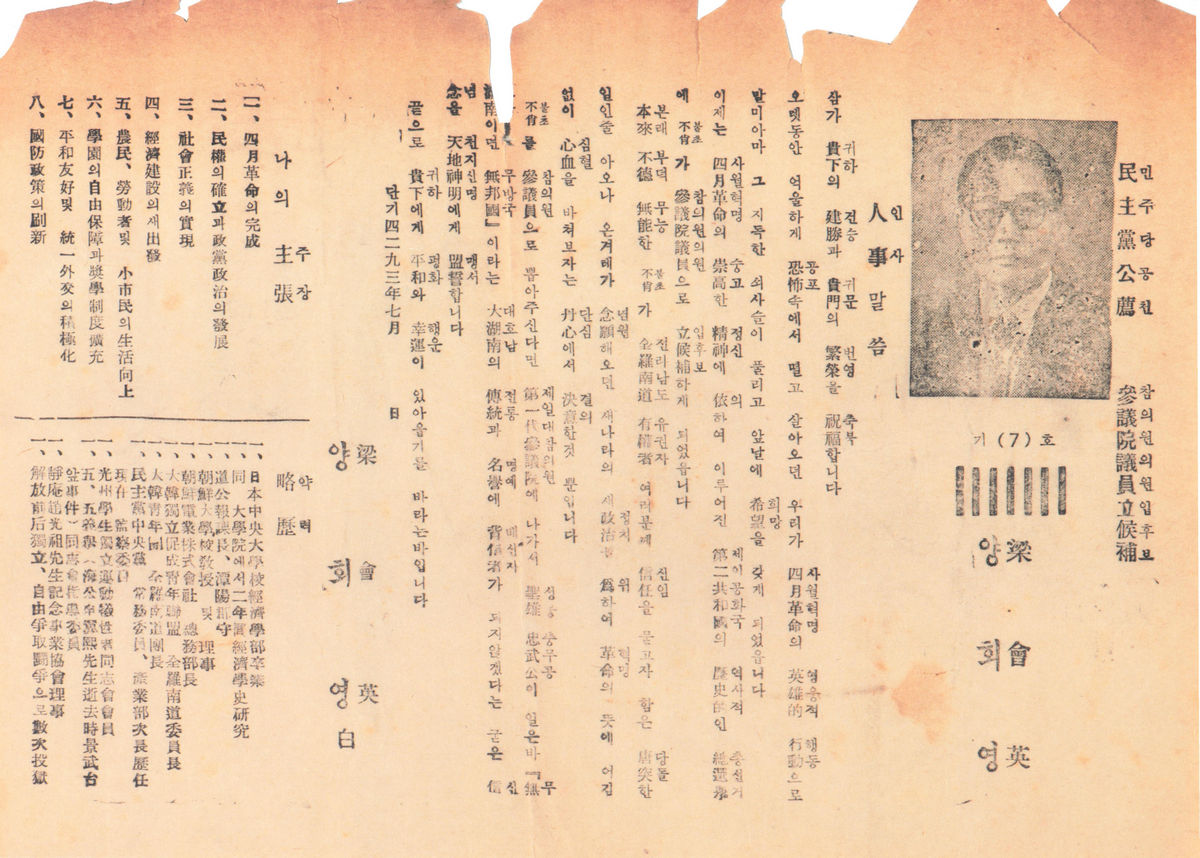 민주당공천 참의원의원입후보
民主黨公薦 參議院議員立候補
기(7)호
梁會英
양회영
인사
人事말씀
귀하 전승 귀문 번영 축복
삼가 貴下의 建勝과 貴門의 繁榮을 祝福합니다
공포 사월혁명 영웅적 행동
오랫동안 억울하게 恐怖속에서 떨고 살아오던 우리가 四月革命의 英雄的 行動으로
희망
말미아마 그 지독한 쇠사슬이 풀리고 앞날에 希望을 갖게 되었읍니다
사월혁명 숭고 정신 의 제이공화국 역사적 총선거
이제는 四月革命의 崇高한 精神에 依하여 이루어진 第二共和國의 歷史的인 總選擧
불초 참의원의원 입후보
에 不肖가 參議院議員으로 立候補하게 되었읍니다
본래 부덕 무능 불초 전라남도 유권자 신임 당돌
本來 不德 無能한 不肖가 全羅南道 有權者 여러분께 信任을 묻고자 함은 唐突한
념원 정치 위 혁명
일인줄 아오나 온겨레가 念願해오던 새나라의 새政治를 爲하여 革命의 뜻에 어김
심혈 단심 결의
없이 心血을 바쳐보자는 丹心에서 決意한것 뿐입니다
불초 참의원 제일대참의원 성웅 충무공 무
不肖를 參議員으로 뽑아주신다면 第一代參議院에 나가서 聖雄 忠武公이 일은바『無
무방국 대호남 전통 명예 배신자 신
湖南이면 無邦國』이라는 大湖南의 傳統과 名譽에 背信者가 되지않겠다는 굳은 信
념 천지신명 맹서
念을 天地神明에게 盟誓합니다
귀하 평화 행운
끝으로 貴下에게 平和와 幸運이 있아옵기를 바라는바입니다
단기四二九三年七月 日
梁會英
양회영白
주장
나의 主張
一、四月革命의完成
二、民權의確立과政黨政治의發展
三、社會正義의實現
四、經濟建設의새出發
五、農民、勞動者및 小市民의生活向上
六、學園의自由保障과奬學制度擴充
七、平和友好및 統一外交의積極化
八、國防政策의刷新
약력
略歷
一、日本中央大學校經濟學部卒業
一、同 大學院에서二年間經濟學史硏究
一、道公報課長、潭陽郡守
一、朝鮮大學校敎授 및 理事
一、朝鮮電業株式會社 總務部長
一、大韓獨立促成靑年聯盟 全羅南道委員長
一、大韓靑年團 全羅南道團長
一、民主黨中央黨 常務委員、產業部次長歷任
現在 監察委員
一、光州學生獨立運動犧性者同志會會員
一、五、五義擧(海公申翼熙先生逝去時景武台
앞事件)同志會指導委員
一、靜庵趙光祖先生記念事業協會理事
一、解放前后獨立、自由爭取鬪爭으로數次投獄